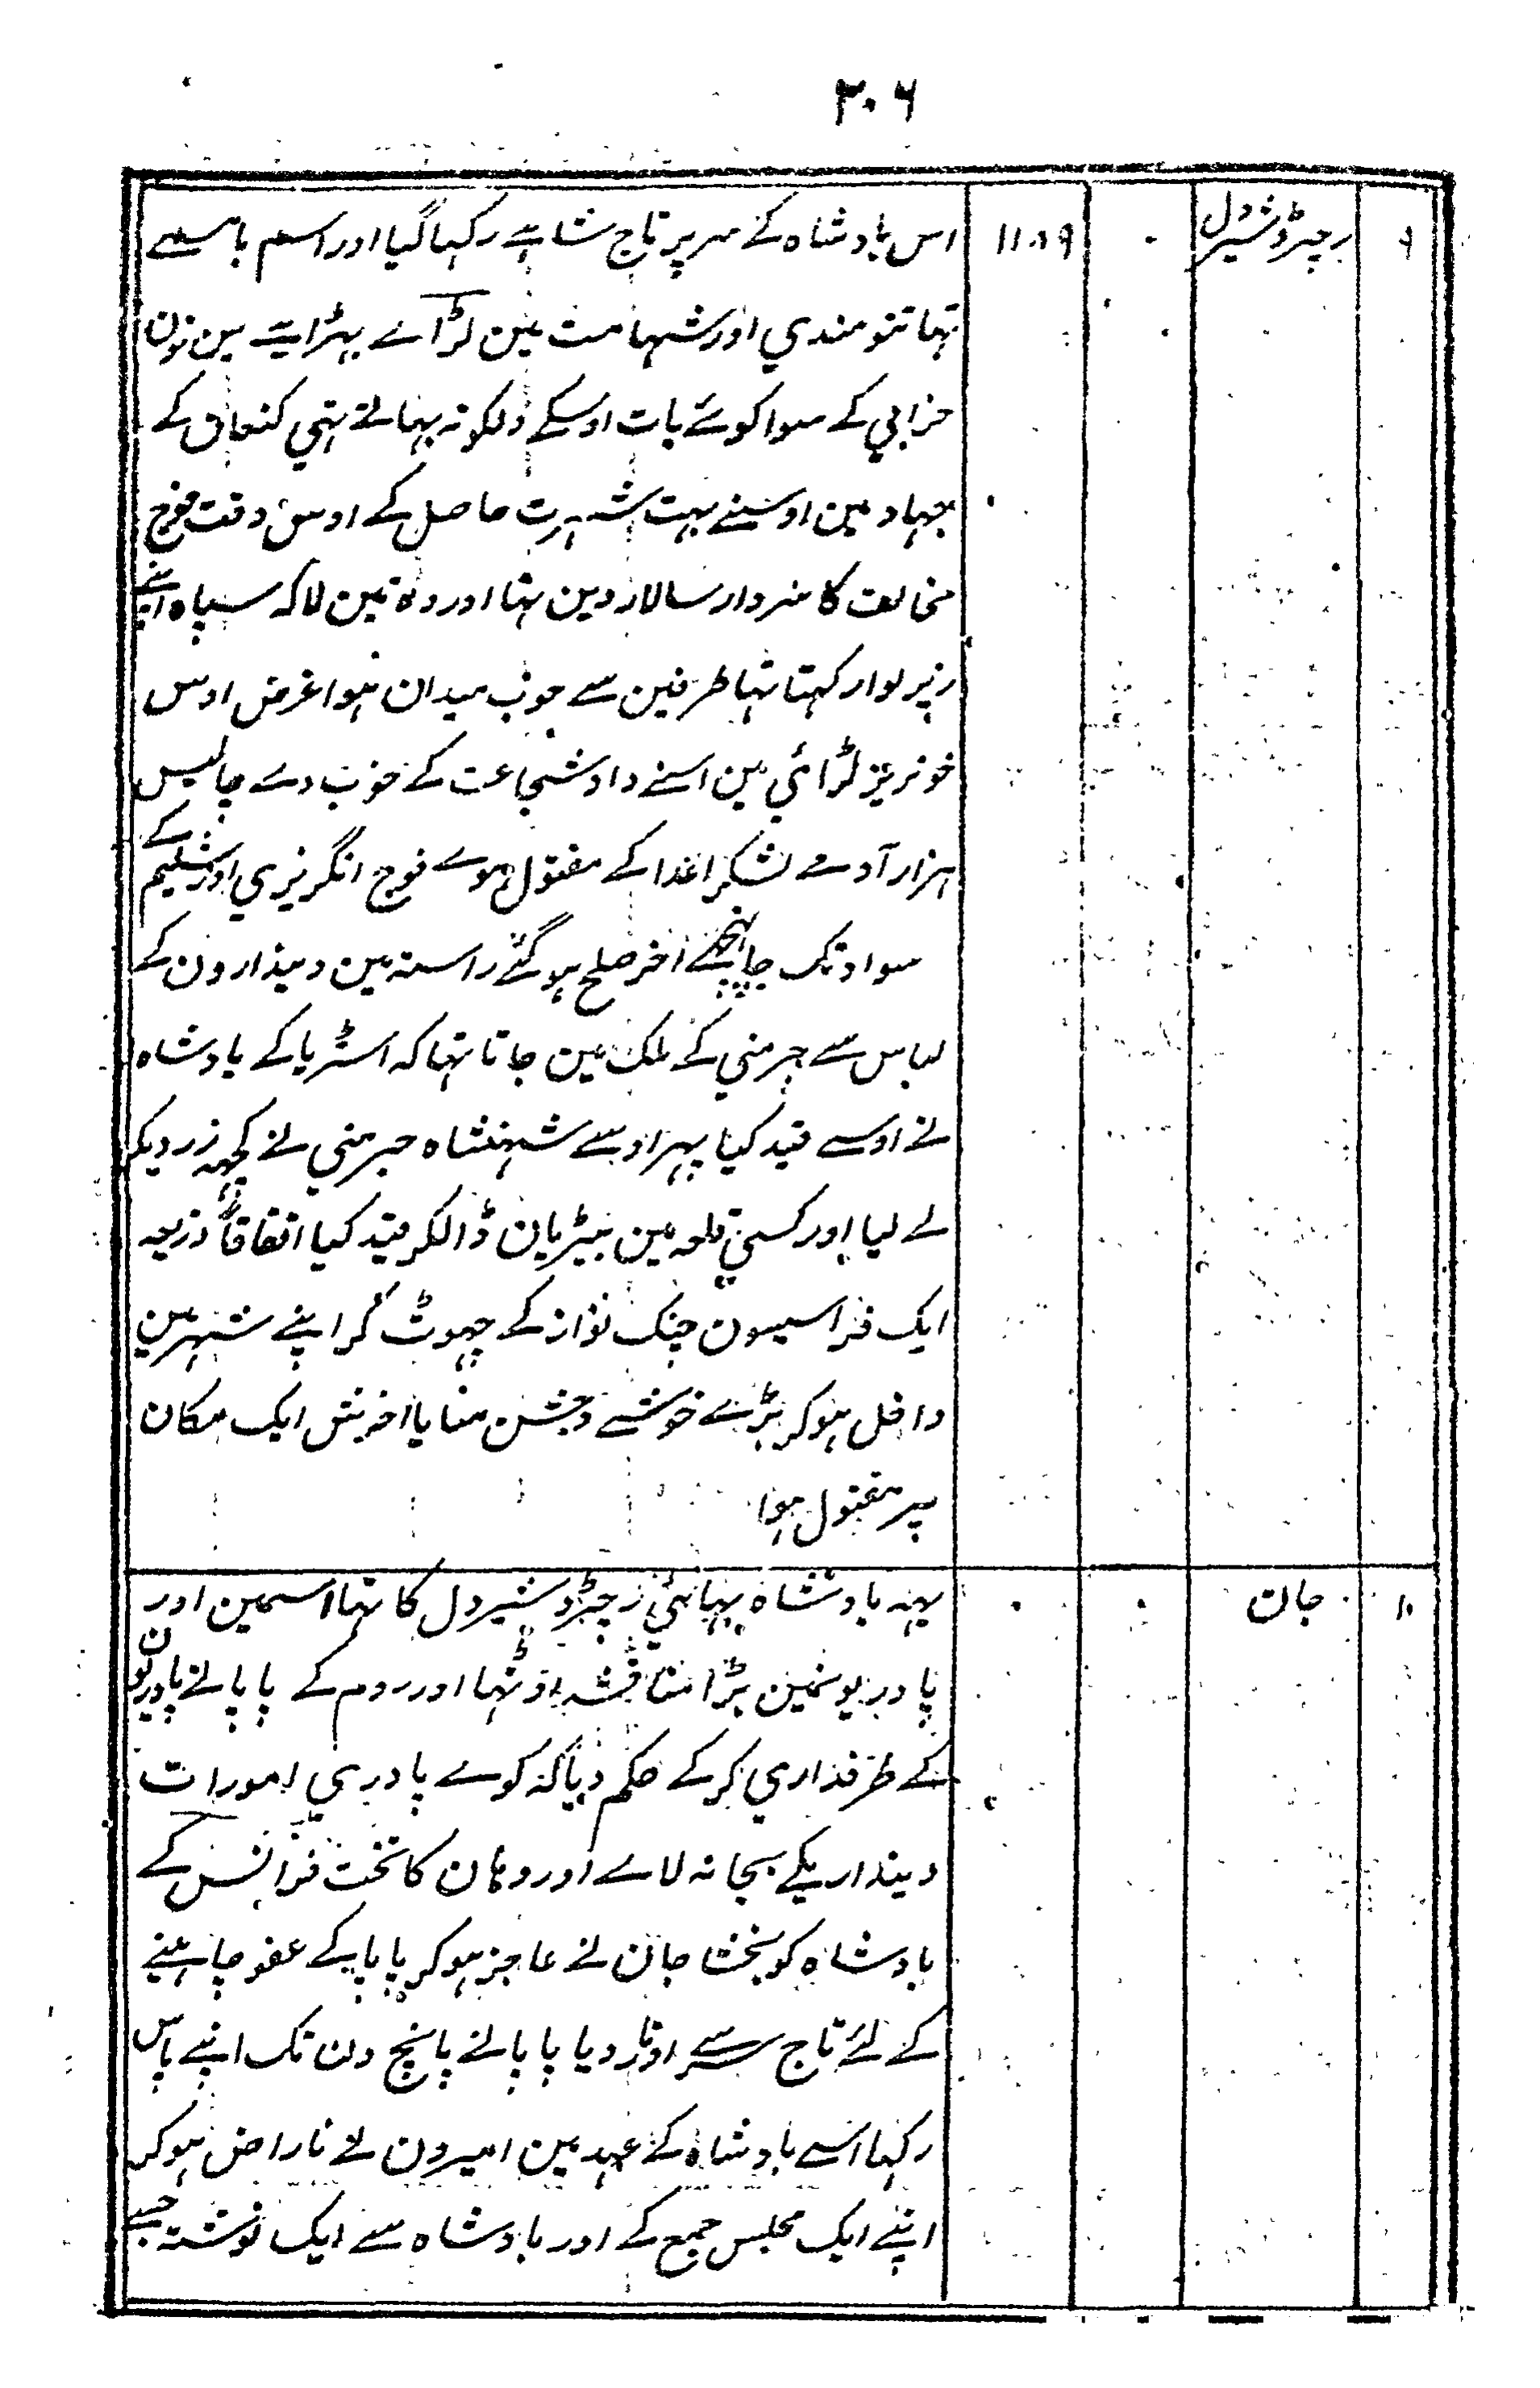 ۳۰۶
۹ رچرڈ شیردل ۰ ۱۱۸۹ اس بادشاہ کے سر پر تاج شاہے رکہا گیا اور اسم بامسمے
تہا تنومندي اور شہامت مین لڑاے بہڑاے مین خون
خرابي کے سوا کوئے بات اوسکے دلکو نہ بہاتے تہي کنعان کے
جہاد مین اوسنے بہت شہرت حاصل کے اوس وقت فوج
مخالف کا سردار سالاردین تہا اور وہ تین لاکہ سپاہ اپنے
زیر لوا رکہتا تہا طرفین سے جو بُ میدان ہوا غرض اوس
خونریز لڑائي مین اسنے داد شجاعت کے خوب دے چالیس
ہزار آدمے لشکر اعدا کے مقتول ہوے فوج انگریزي اورشلیم کے
سواد تک جا پہنچے اخر صلح ہو گئے راستہ مین دیندارون کے
لباس سے جرمني کے ملک مین جاتا تہا کہ اسٹریا کے بادشاہ
نے اوسے قید کیا پہر اوسے شہنشاہ جرمني نے کچہہ زر دیکر
لے لیا اور کسي قلعہ مین بیڑیان ڈالکر قید کیا اتفاقاً ذریعہ
ایک فراسیسون چنک نواز کے چہوٹ کر اپنے شہر مین
داخل ہو کر بڑے خوشے و جشن منایا اخرش ایک مکان
پر مقتول ہوا
۱۰ جان ۰ ۰ یہہ بادشاہ بہائي رچرڈ شیردل کا تہا اسمین اور
پادریونمین بڑا مناقشہ اوٹہا اور روم کے پاپا نے پادریونکو
کے طرفداري کر کے حکم دیا کہ کوے پادري امورات
دینداریکے بجا نہ لاے اور وہان کا تخت فرانس کے
بادشاہ کو بخشا جان نے عاجز ہو کر پاپا کے عفو چاہنے
کے لئے تاج سرسے اوتار دیا پاپا نے پانچ دن تک اپنے پاس
رکہا اسے بادشاہ کے عہد مین امیرون نے ناراض ہو کر
اپنے ایک مجلس جمع کے اور بادشاہ سے ایک نوشتہ جسے